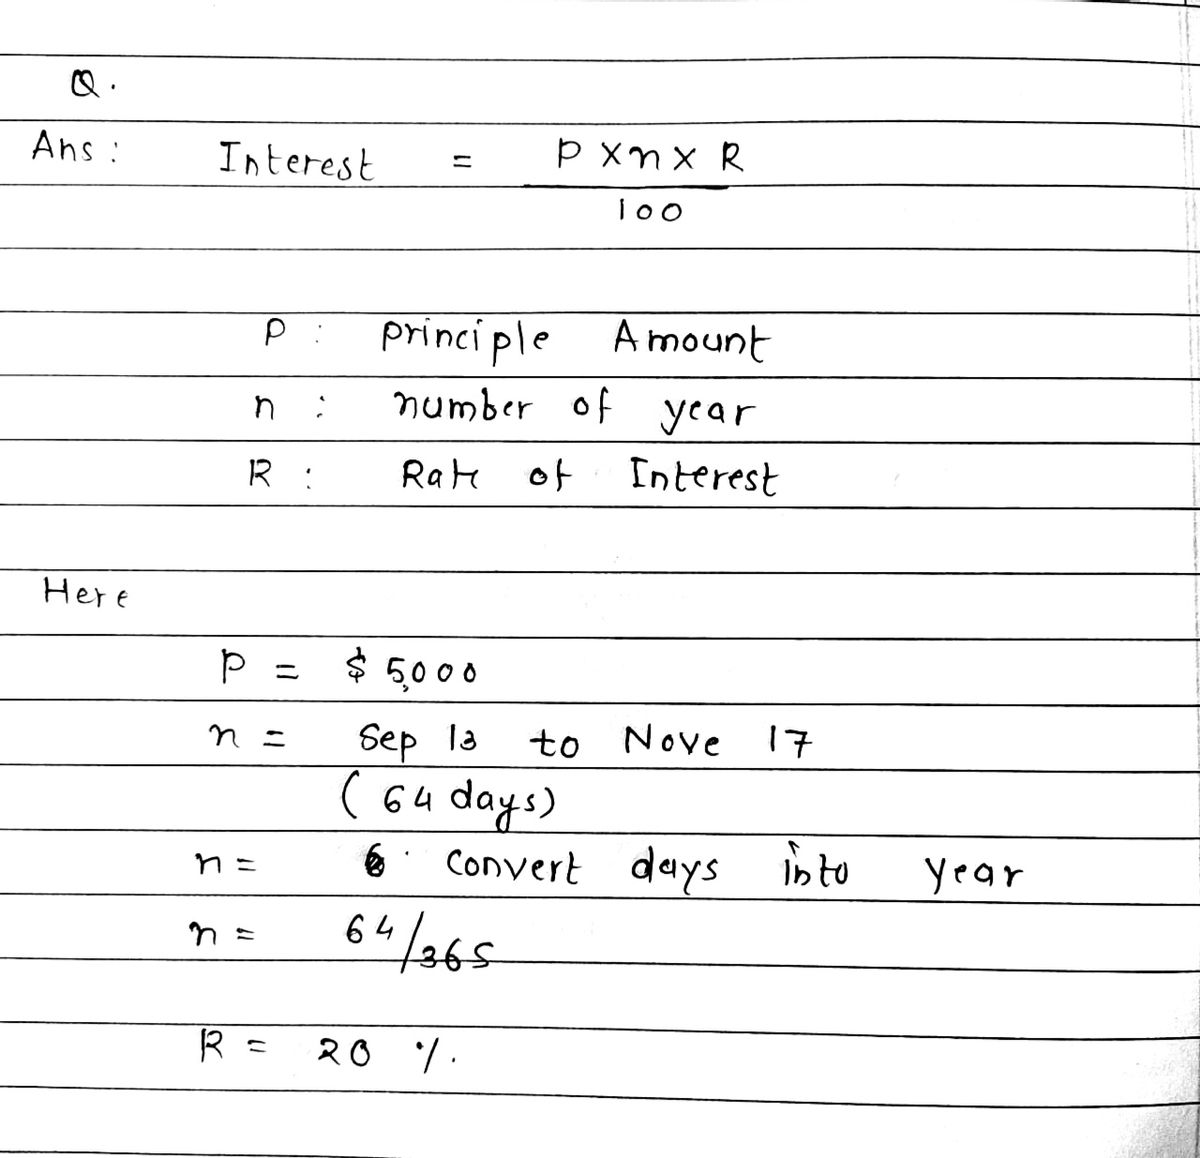 Q.
Ans : Interest = P x n x R
100
P : principle Amount
n : number of year
R : Rate of Interest
Here
P = $ 5,000
n = Sep 13 to Nove 17
( 64 days)
n = convert days into year
n = 64/365
R = 20 %.